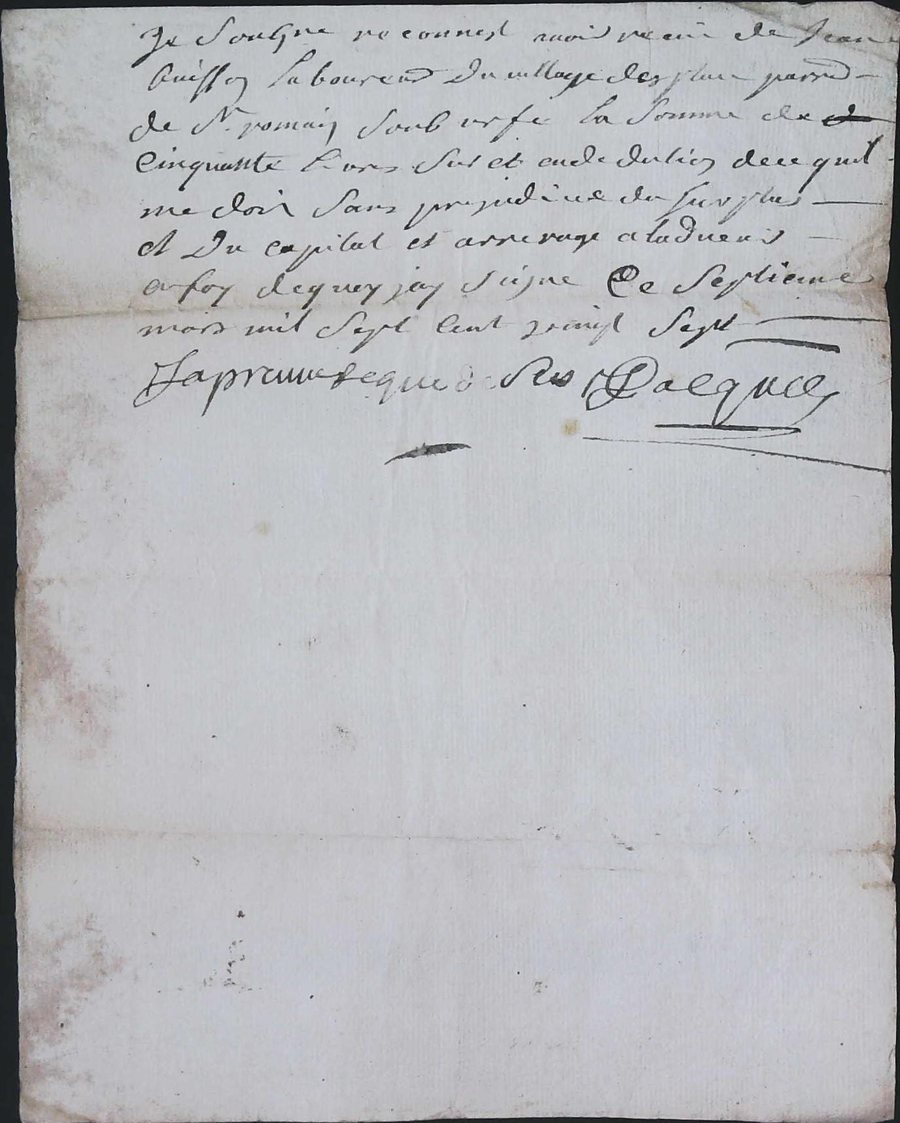 Je Soubsigne reconnest avoir receu de Jean
buisson laboureur du village desplane parroi
de St romain Soub urfe la Somme de
Cinquante livres Sur et en deduction de ce quil
me doit Sans prejudice du surplus
et Du capital et arrerage a ladvenir
en foy dequoy jay Signe Ce Septieme
mars mil Sept Cent vingt Sept